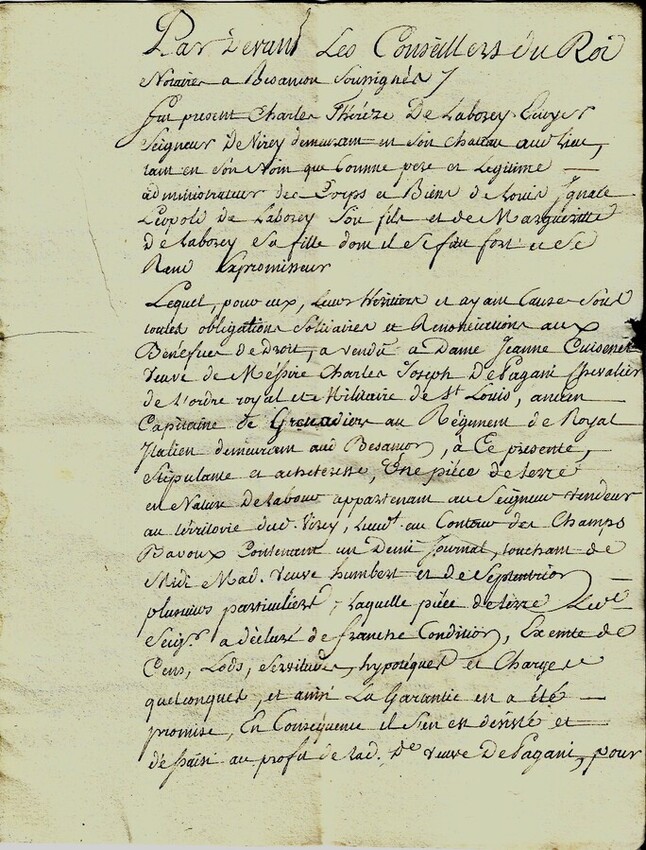 Par Devant Les Conseillers du Roi
Notaires a Besancon Soussignés
fut present Charles Théréze De Laborey Ecuyer
Seigneur De Virey demeurant en Son Chateau aud. Lieu,
tant en Son Nom que Comme pere et Legitime
administrateur des Corps et Biens de Louis Ignace
Léopold de Laborey Son fils et de Marguerite
De Laborey Sa fille dont il Se fait fort et Se
Rend Expromisseur
Lequel, pour eux, Leurs Héritiers et ayant Cause Sous
toutes obligations Solidaires et Renonciations aux
Bénéfices de Droit, a vendu a Dame Jeanne Cuisenet
veuve de Messire Charles Joseph De Pagani Chevalier
de L'ordre royal et Militaire de St. Louis, ancien
Capitaine de Grenadiers au Régiment de Royal
Italien demeurant aud Besancon, a Ce presente,
Stipulante et acheteresse, Une piéce de terre
en Nature De Labour appartenant au Seigneur vendeur
au térritoire dud. Virey, Lieudt. au Contour des Champs
Bavoux Contenant un Demi Journal, touchant de
Midi Mad. veuve humbert et de Septentrion
plusieurs particuliers, Laquelle piéce de terre Led.
Seigr. a déclaré de franche Condition, Exempte de
Cens, Lods, Servitudes, hypotéques et Charges
quelconques, et ainsi La Garantie en a été
promise, En Conséquence il S'en en devetu et
déssaisi au profit de Lad. De. veuve De Pagani, pour